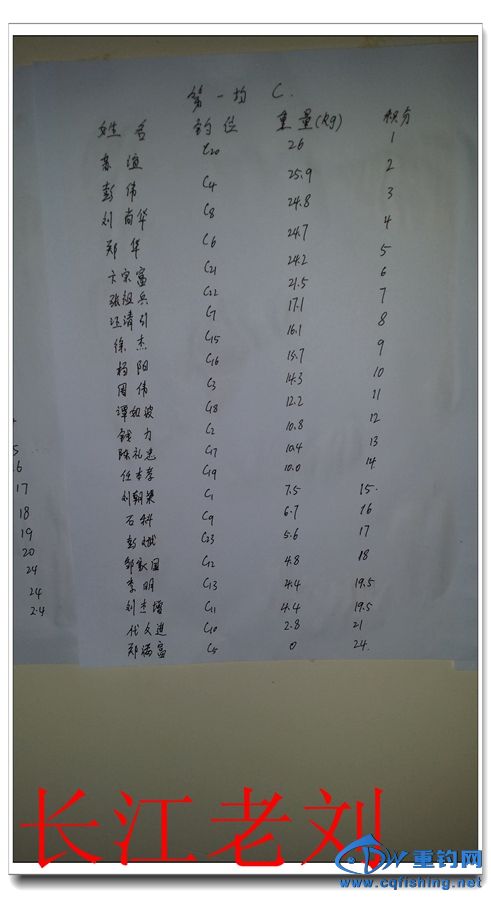 第一场 C.
姓名 钓位 重量(kg) 积分
C20 26 1
彭伟 C4 25.9 2
刘尚华 C8 24.8 3
郑华 C6 24.7 4
卞宗富 C21 24.2 5
张祖兵 C22 21.5 6
汪清引 C7 17.1 7
徐杰 C15 16.1 8
杨阳 C16 15.7 9
周伟 C3 14.3 10
谭如波 C18 12.2 11
钱力 C2 10.8 12
陈礼忠 C17 10.4 13
任孝 C19 10.0 14
刘朝 C1 7.5 15.
石科 C9 6.7 16
彭斌 C23 5.6 17
邹家国 C12 4.8 18
李明 C13 4.4 19.5
刘 C11 4.4 19.5
代久进 C10 2.8 21
郑瑞富 C5 0 24.
17
18
19
20
24
24
24
长江老刘
重钓网
www.cqfishing.net